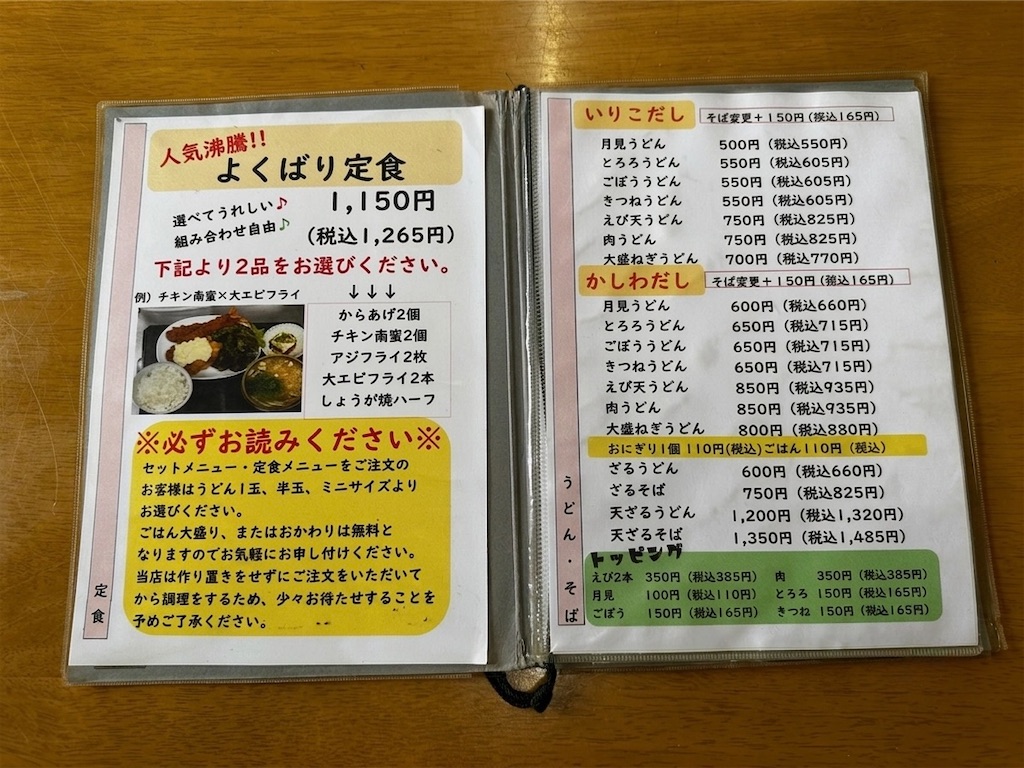 人気沸騰!!
よくばり定食
選べてうれしい♪
組み合わせ自由♪
1,150円
(税込1,265円)
下記より2品をお選びください。
例）チキン南蛮×大エビフライ
↓↓↓
からあげ2個
チキン南蛮2個
アジフライ2枚
大エビフライ2本
しょうが焼ハーフ
※必ずお読みください※
セットメニュー・定食メニューをご注文の
お客様はうどん1玉、半玉、ミニサイズより
お選びください。
ごはん大盛り、またはおかわりは無料と
なりますのでお気軽にお申し付けください。
当店は作り置きをせずにご注文をいただいて
から調理をするため、少々お待たせすることを
予めご了承ください。
定食
いりこだし そば変更+150円(税込165円)
月見うどん 500円(税込550円)
とろろうどん 550円(税込605円)
ごぼううどん 550円(税込605円)
きつねうどん 550円(税込605円)
えび天うどん 750円(税込825円)
肉うどん 750円(税込825円)
大盛ねぎうどん 700円(税込770円)
かしわだし そば変更+150円(税込165円)
月見うどん 600円(税込660円)
とろろうどん 650円(税込715円)
ごぼううどん 650円(税込715円)
きつねうどん 650円(税込715円)
えび天うどん 850円(税込935円)
肉うどん 850円(税込935円)
大盛ねぎうどん 800円(税込880円)
おにぎり1個 110円(税込)ごはん110円(税込)
ざるうどん 600円(税込660円)
ざるそば 750円(税込825円)
天ざるうどん 1,200円(税込1,320円)
天ざるそば 1,350円(税込1,485円)
トッピング
えび2本 350円(税込385円) 肉 350円(税込385円)
月見 100円(税込110円) とろろ 150円(税込165円)
ごぼう 150円(税込165円) きつね 150円(税込165円)
うどん・そば